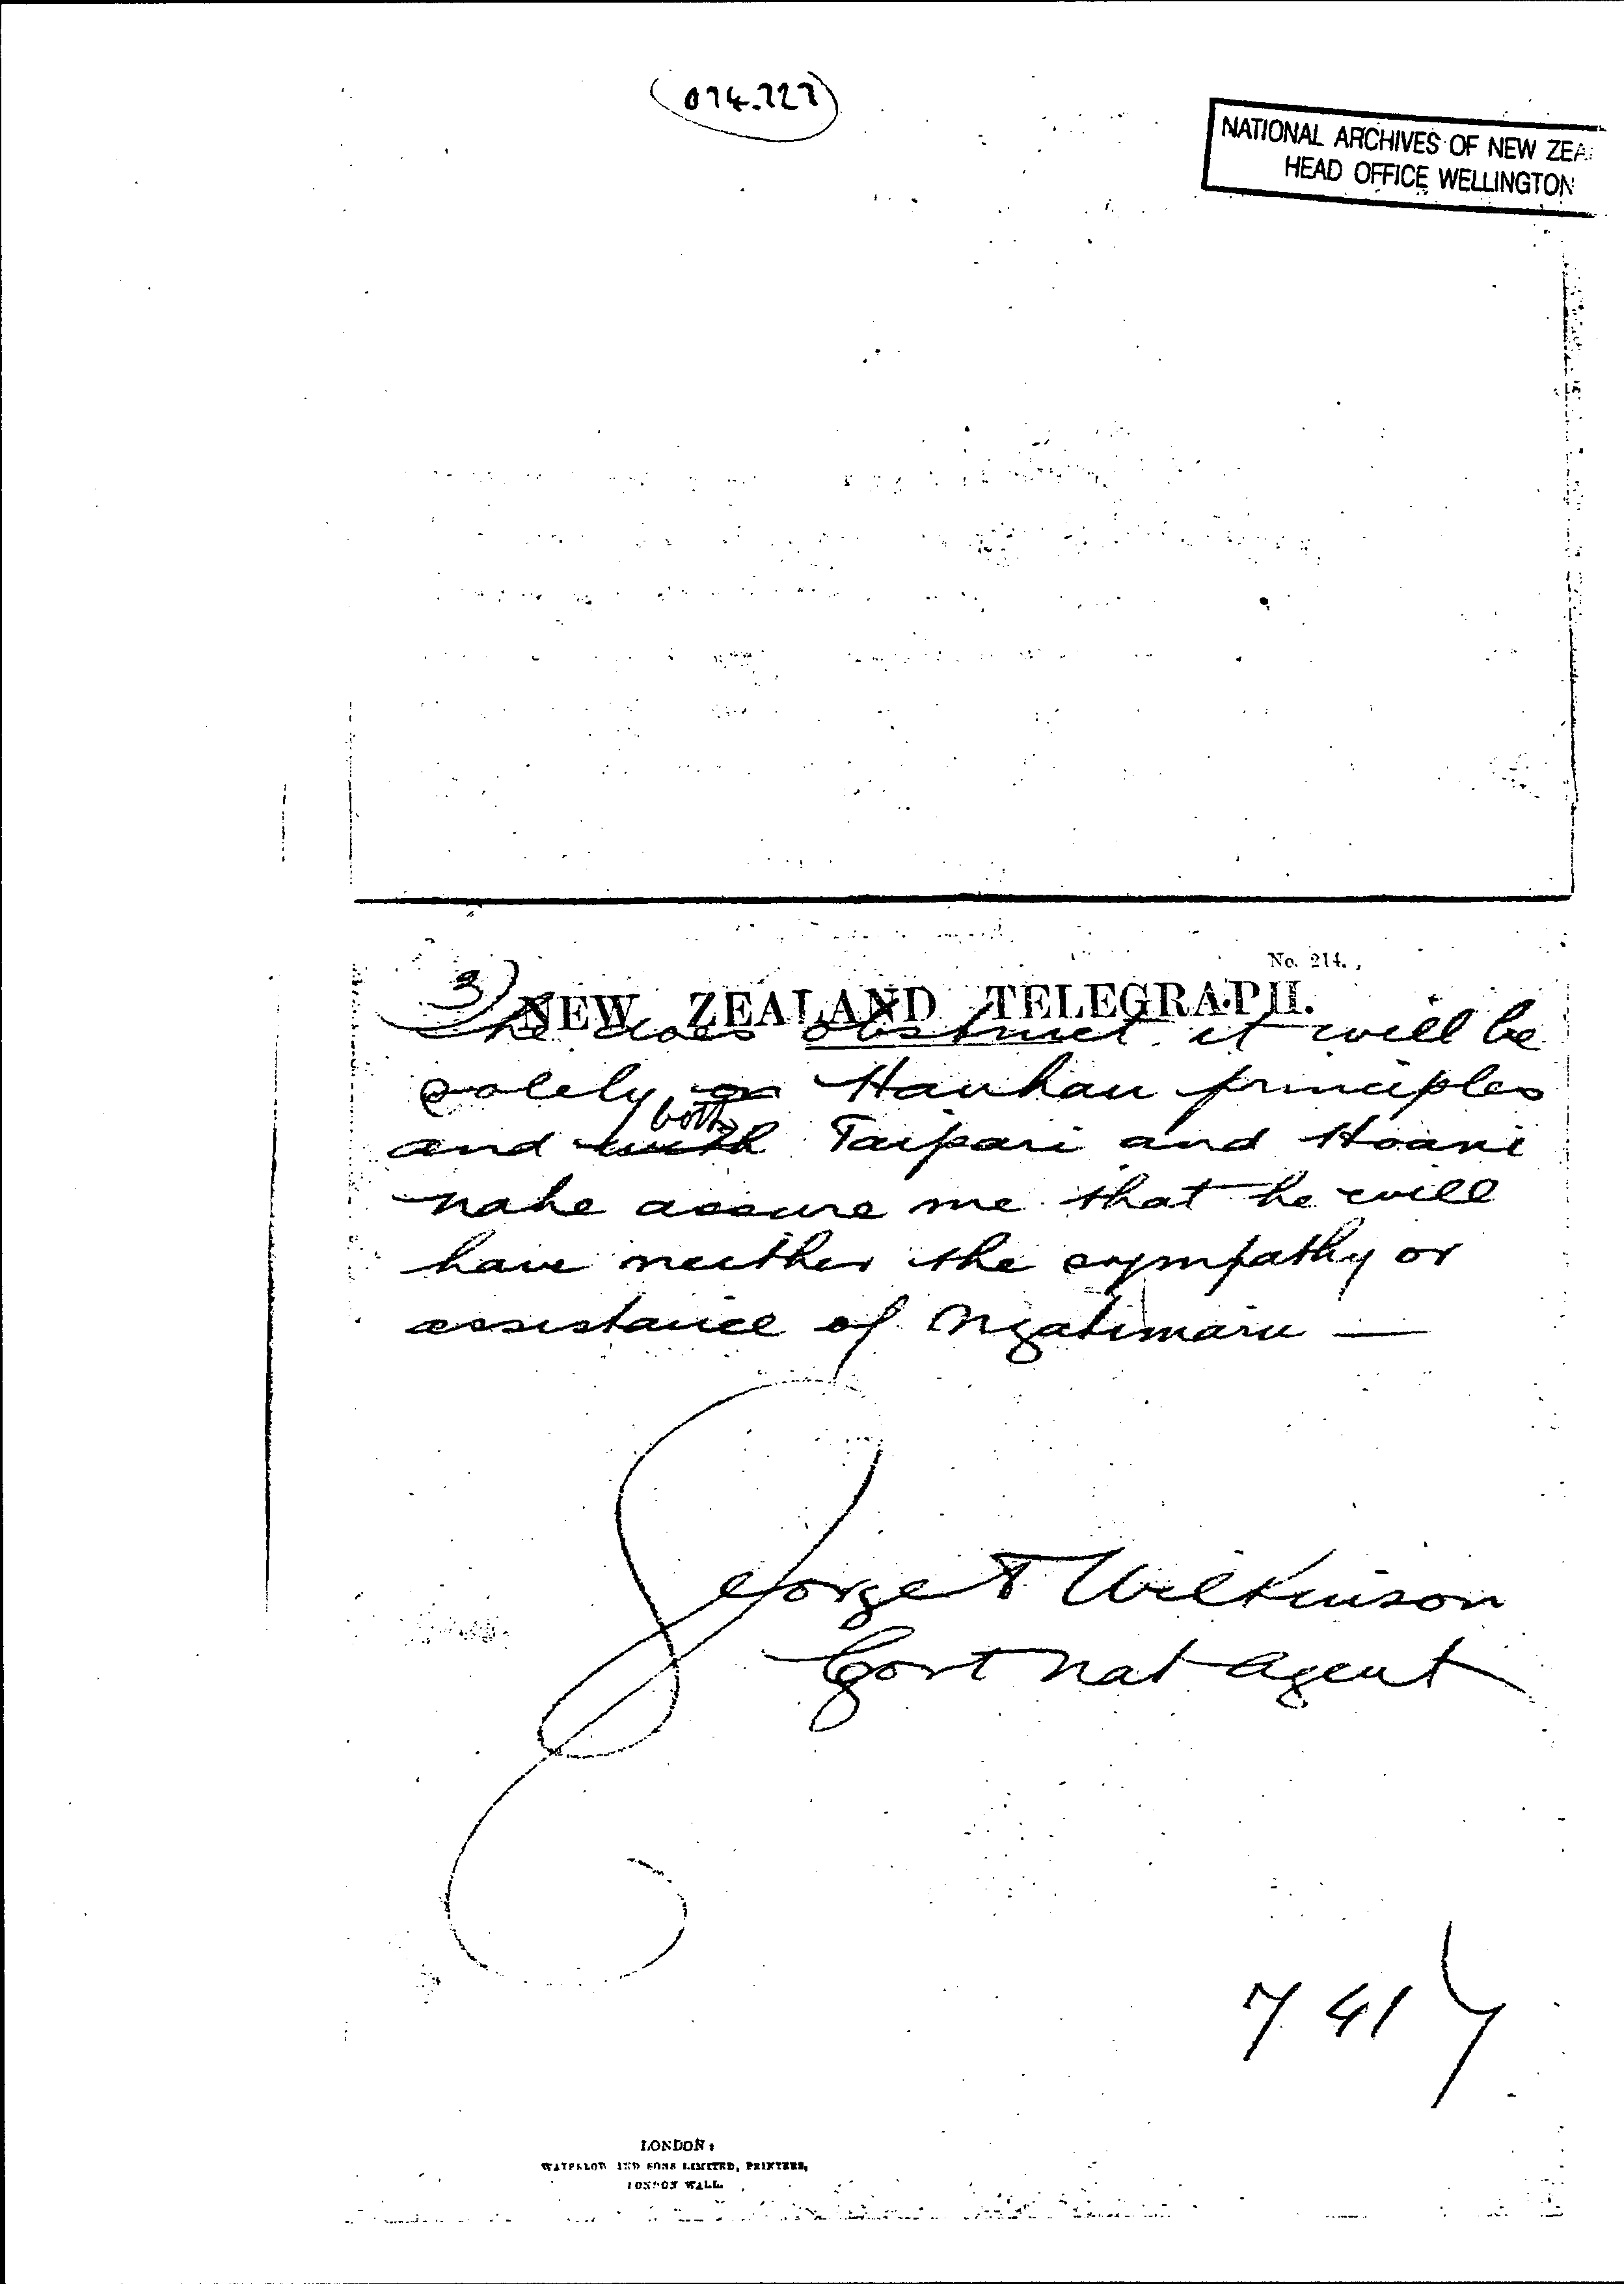 074.727
NATIONAL ARCHIVES OF NEW ZEA
HEAD OFFICE WELLINGTON
No. 214.
3) NEW ZEALAND TELEGRAPH.
he does obstruct it will be
solely on Hauhau principles
and with both Taipari and Hoani
nahe assure me that he will
have neither the sympathy or
assistance of Ngatimaru —
George T Wilkinson
Govt Nat Agent
741
LONDON:
WATERLOW AND SONS LIMITED, PRINTERS,
LONDON WALL.